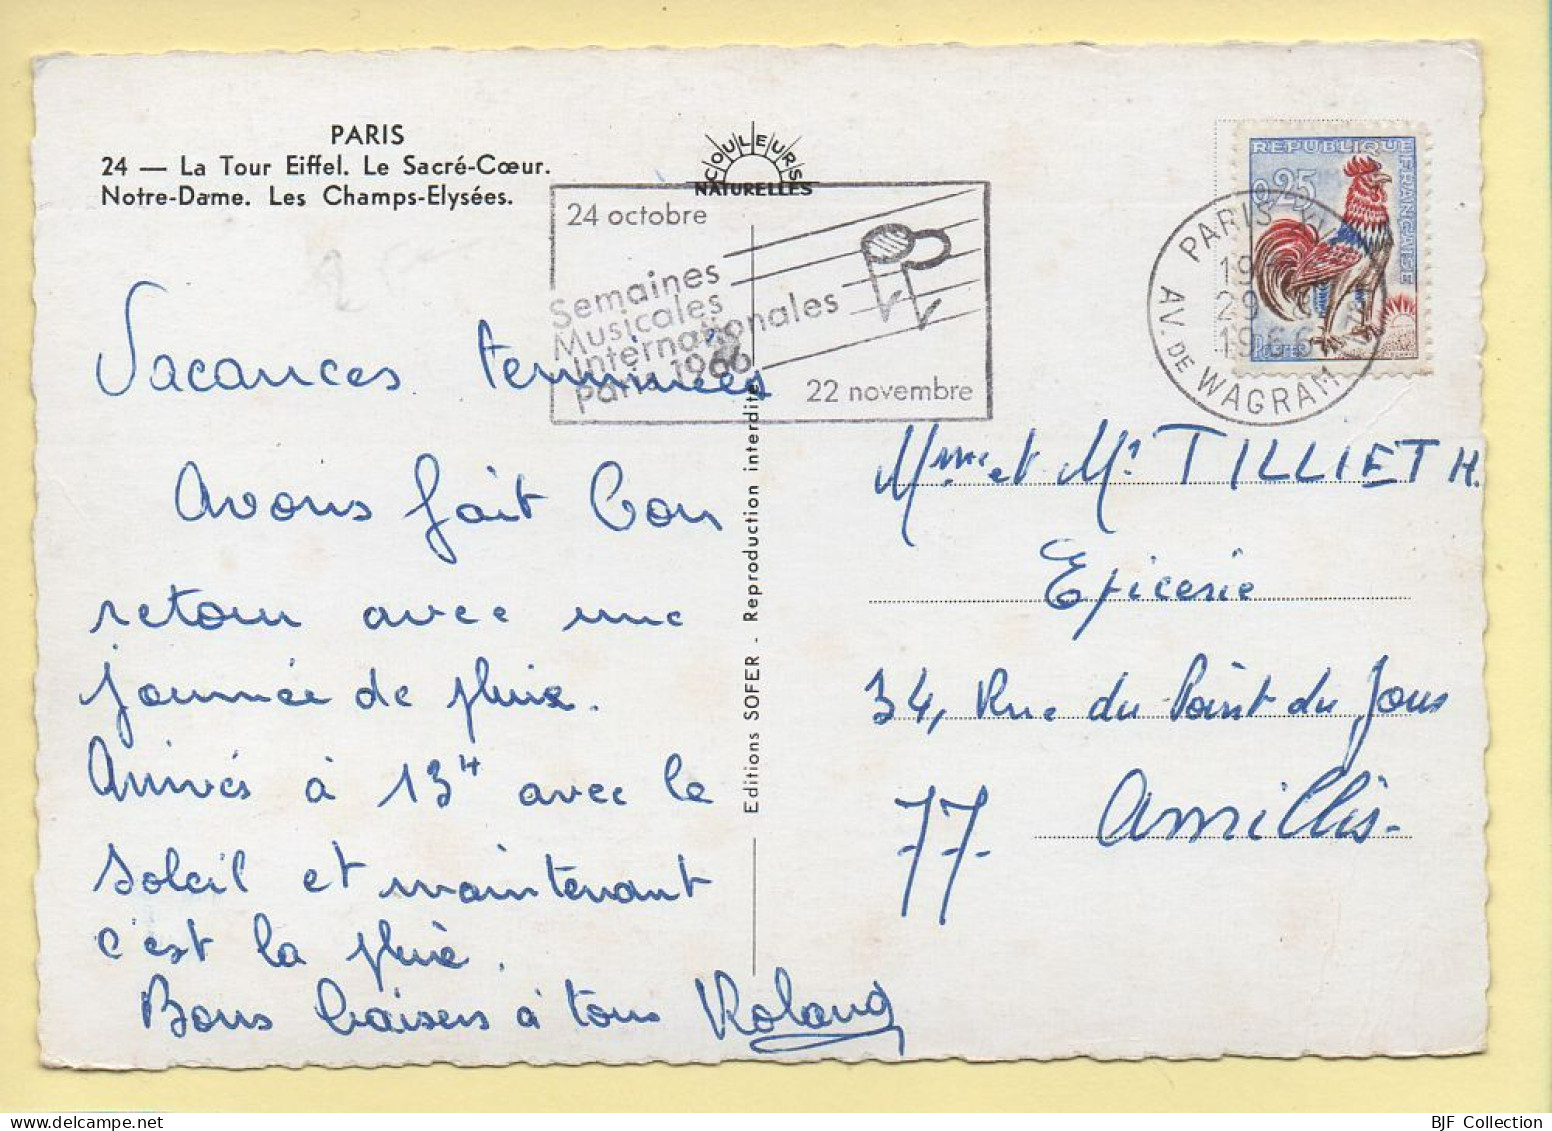 PARIS
24 — La Tour Eiffel. Le Sacré-Cœur.
Notre-Dame. Les Champs-Elysées.
COULEURS
NATURELLES
24 octobre
Semaines
Musicales
Internationales
Paris 1966
22 novembre
REPUBLIQUE FRANÇAISE
0,25
POSTES
PARIS
19
29
1966
AV. DE WAGRAM
Vacances terminées
Avons fait bon
retour avec une
journée de pluie.
Arrivés à 13H avec le
soleil et maintenant
c'est la pluie.
Bons baisers à tous Roland
Editions SOFER - Reproduction interdite
Mme et Mr TILLIET H.
Epicerie
34, Rue du Point du Jour
77 Amillis-
BJF Collection